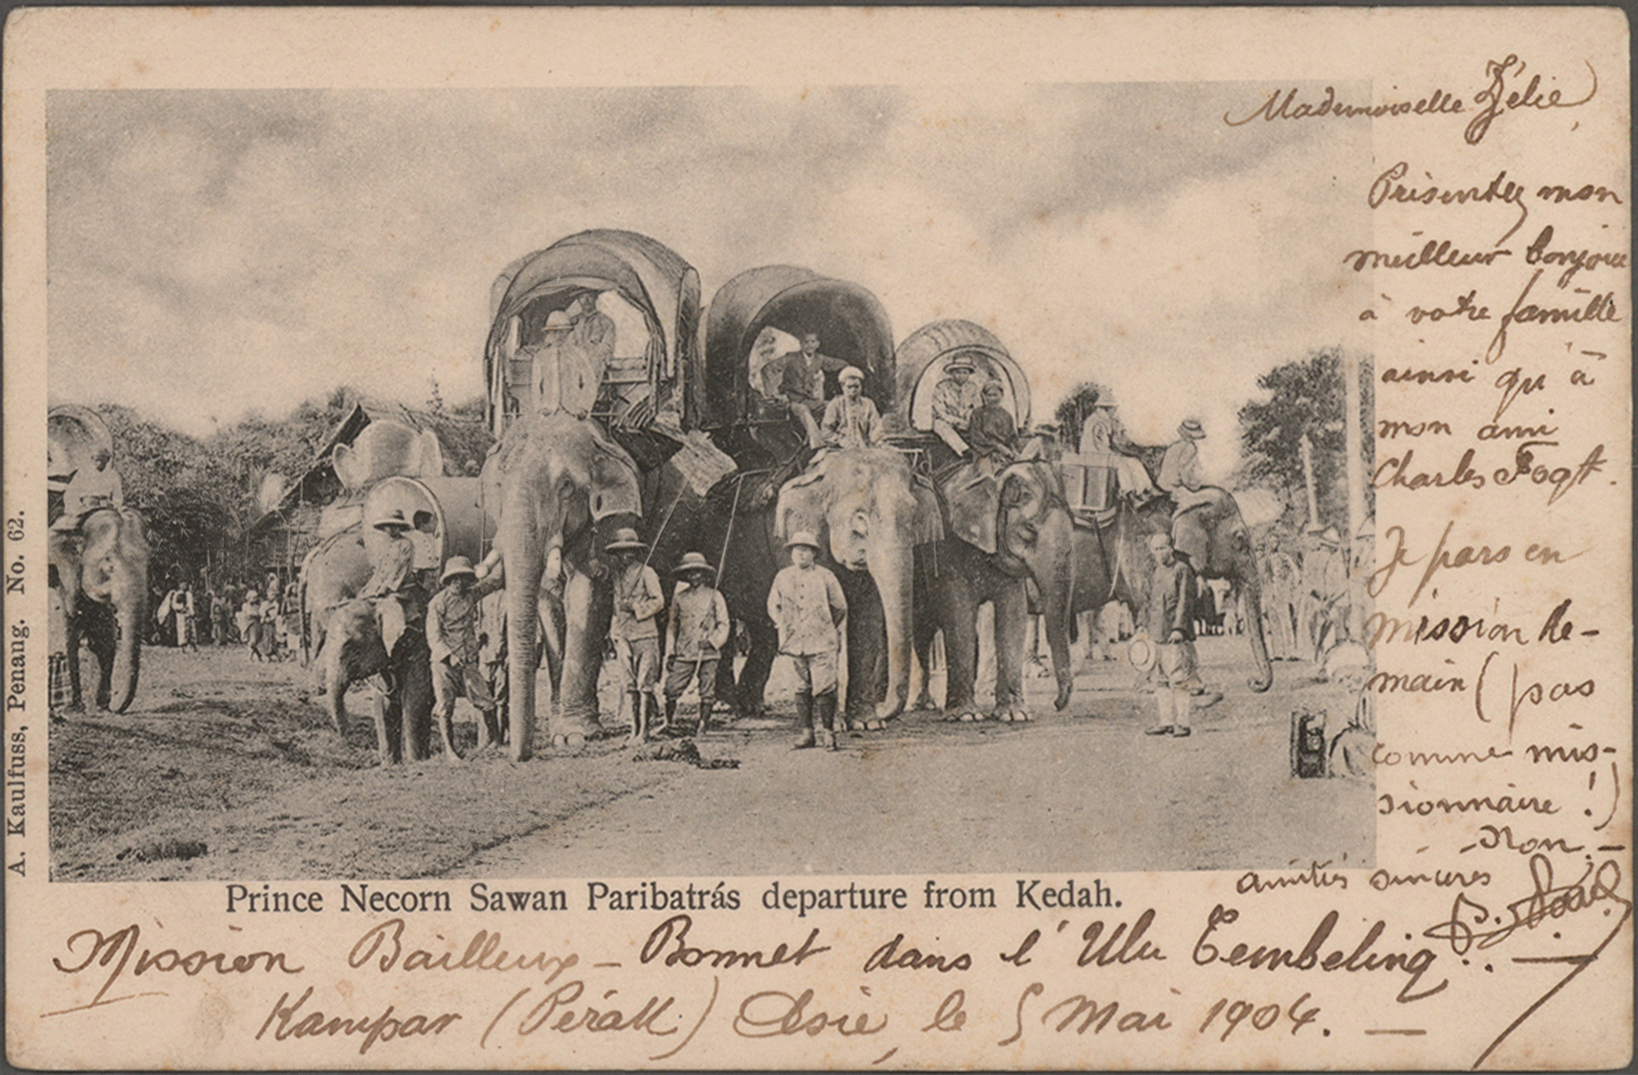 Mademoiselle Zélie,
Présentez mon
meilleur bonjour
à votre famille
ainsi qu'à
mon ami
Charles Fogt.
Je pars en
mission de-
main (pas
comme mis-
sionnaire !)
- Non. -
amitiés sincères
A. Kaulfuss, Penang. No. 62.
Prince Necorn Sawan Paribatrás departure from Kedah.
Mission Bailleux - Bonnet dans l'Ulu Tembeling. . —
Kampar (Pérak) Asie, le 5 Mai 1904. —